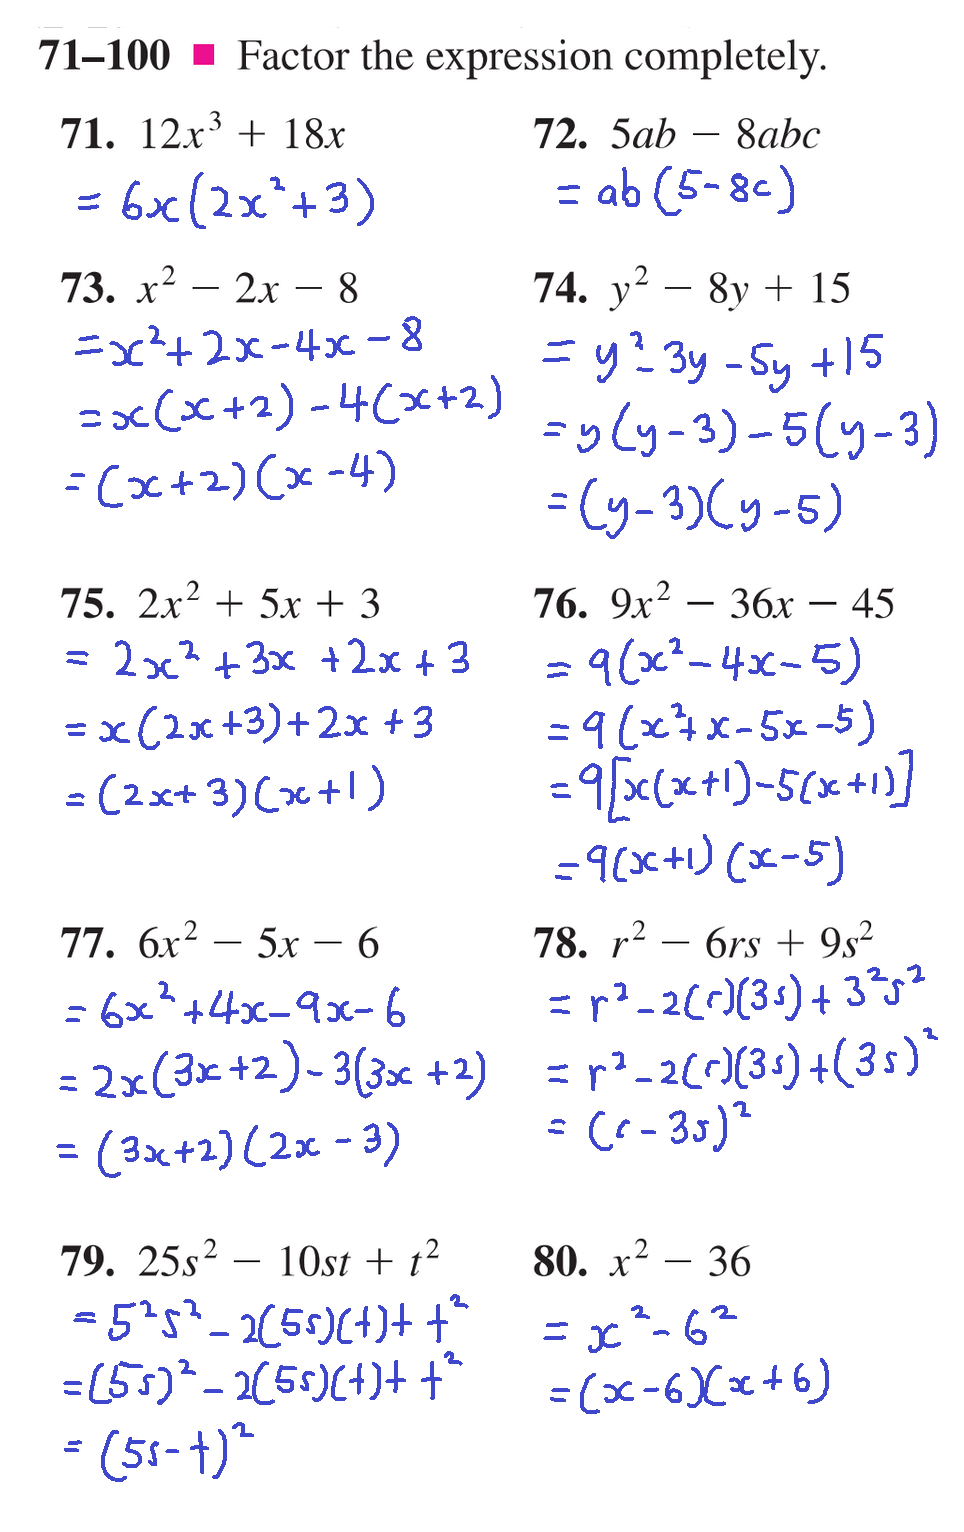 71–100 ■ Factor the expression completely.
71. 12x³ + 18x
= 6x(2x²+3)
72. 5ab − 8abc
= ab(5-8c)
73. x² − 2x − 8
=x²+2x-4x-8
=x(x+2)-4(x+2)
=(x+2)(x-4)
74. y² − 8y + 15
= y²-3y-5y+15
=y(y-3)-5(y-3)
=(y-3)(y-5)
75. 2x² + 5x + 3
= 2x²+3x+2x+3
=x(2x+3)+2x+3
=(2x+3)(x+1)
76. 9x² − 36x − 45
= 9(x²-4x-5)
=9(x²+x-5x-5)
=9[x(x+1)-5(x+1)]
=9(x+1)(x-5)
77. 6x² − 5x − 6
=6x²+4x-9x-6
=2x(3x+2)-3(3x+2)
=(3x+2)(2x-3)
78. r² − 6rs + 9s²
= r²-2(r)(3s)+3²s²
= r²-2(r)(3s)+(3s)²
= (r-3s)²
79. 25s² − 10st + t²
=5²s²-2(5s)(t)+t²
=(5s)²-2(5s)(t)+t²
= (5s-t)²
80. x² − 36
= x²-6²
=(x-6)(x+6)